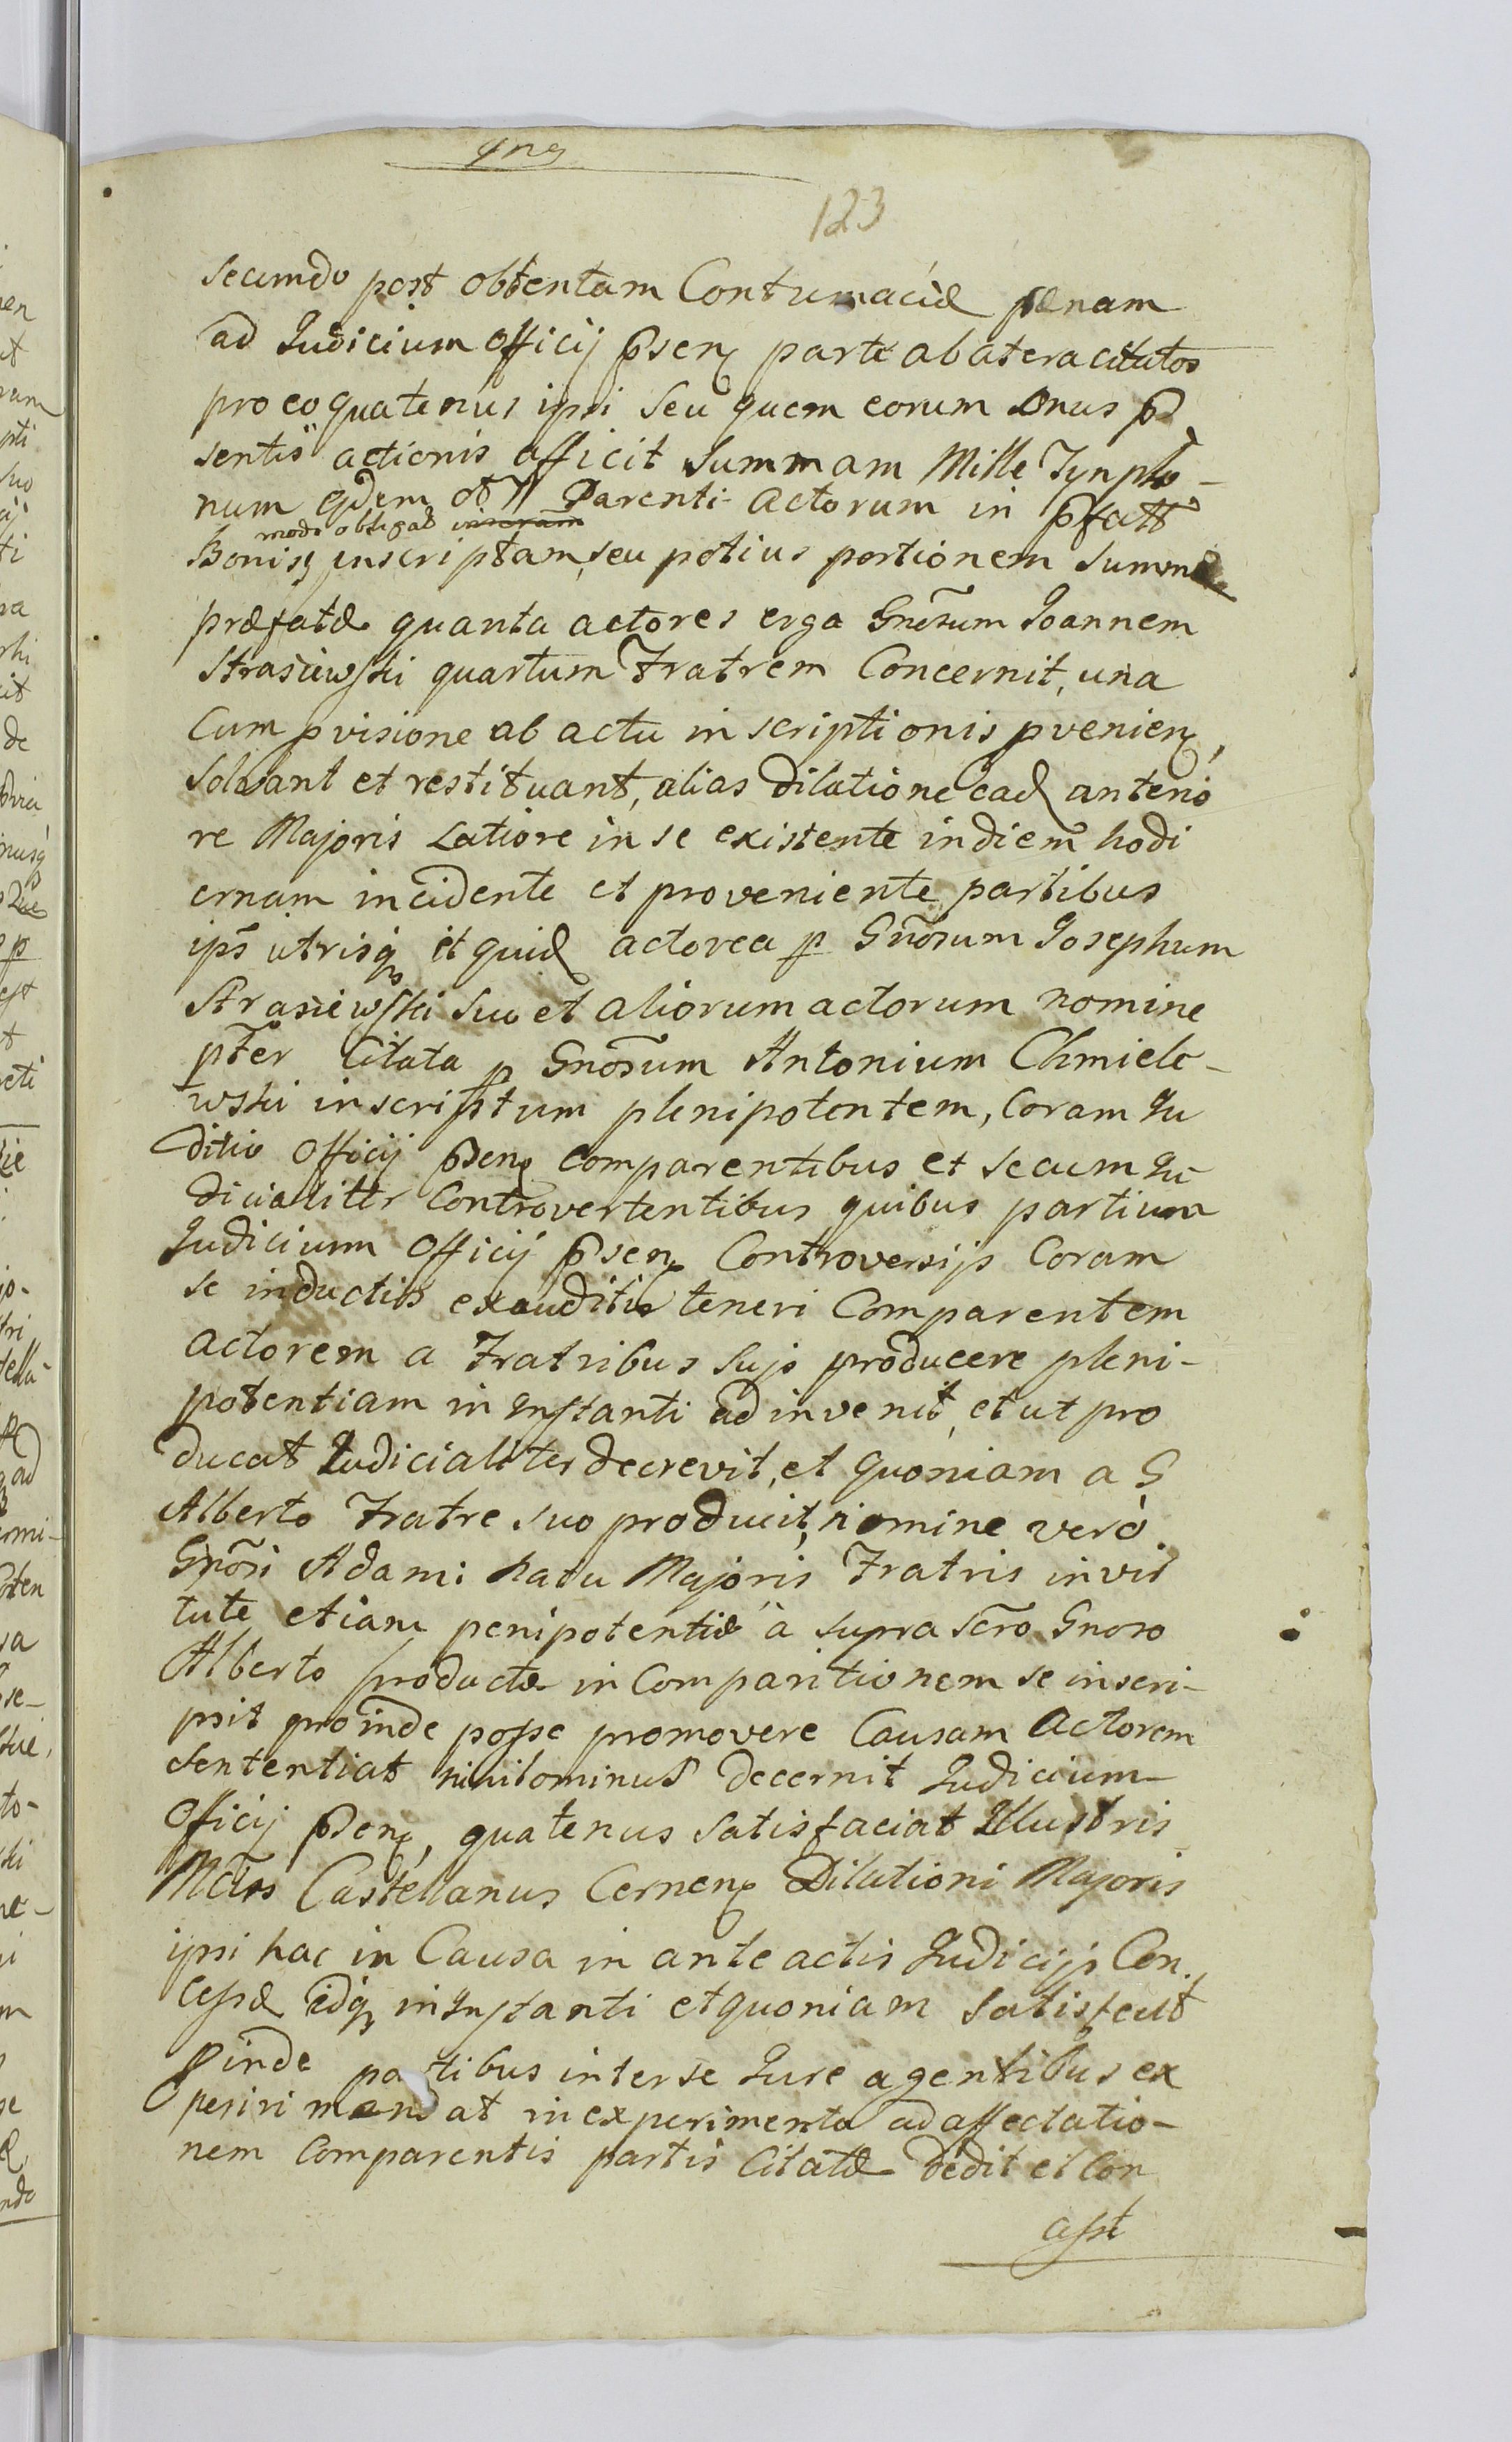 123
secundo post obtentam Contumaciæ pænam
ad Judicium Officij p̄sen parte ab atera citatos
pro eo quatenus ipsi seu quem eorum Onus p̄
sentis actionis afficit Summam Mille Tynpho-
num Parenti Actorum in p̄fatt
modo obligat
Bonis inscriptam, seu potius portionem Summæ
præfatæ quanta actores erga Gnōsum Joannem
Strasiewski quartum Fratrem Concernit, una
Cum pvisione ab actu inscriptionis pvenien,
Solvant et restituant, alias dilatione ead anterio
re Majoris Latiore in se existente in diem hodi
ernam incidente et proveniente partibus
ips̄ utrisq et quid actorea p Gnōsum Josephum
Strasiewski suo et aliorum actorum nomine
pter Citata p Gnōsum Antonium Chmiele-
wski inscriptum plenipotentem, Coram Ju
ditio Officij p̄sen comparentibus et secum Ju-
dicialitr Controvertentibus quibus partium
Judicium Officij p̄sen Controversijs Coram
se inductis exauditis teneri Comparentem
actorem a Fratribus sujs producere pleni-
potentiam in Instanti adinvenit, et ut pro
ducat Judicialiter decrevit, et quoniam a G
Alberto Fratre suo producit, nomine vero
Gnōsi Adami natu Majoris Fratris in vir
tute etiam penipotentiæ a supra scr̄o Gnoso
Alberto productæ in Comparitionem se inscri-
psit proinde posse promovere Causam Actorem
sententiat nihilominus decernit Judicium
Officij p̄sen, quatenus satisfaciat Illustris
Castellanus Cernen Dilationi Majoris
ipsi hac in Causa in ante actis Judicijs Con
cessæ idq in Instanti et quoniam satisfecit
pinde partibus inter se Jure agentibus ex
periri mandat in experimento ad affectatio-
nem Comparentis partis Citatæ dedit et Con
asst